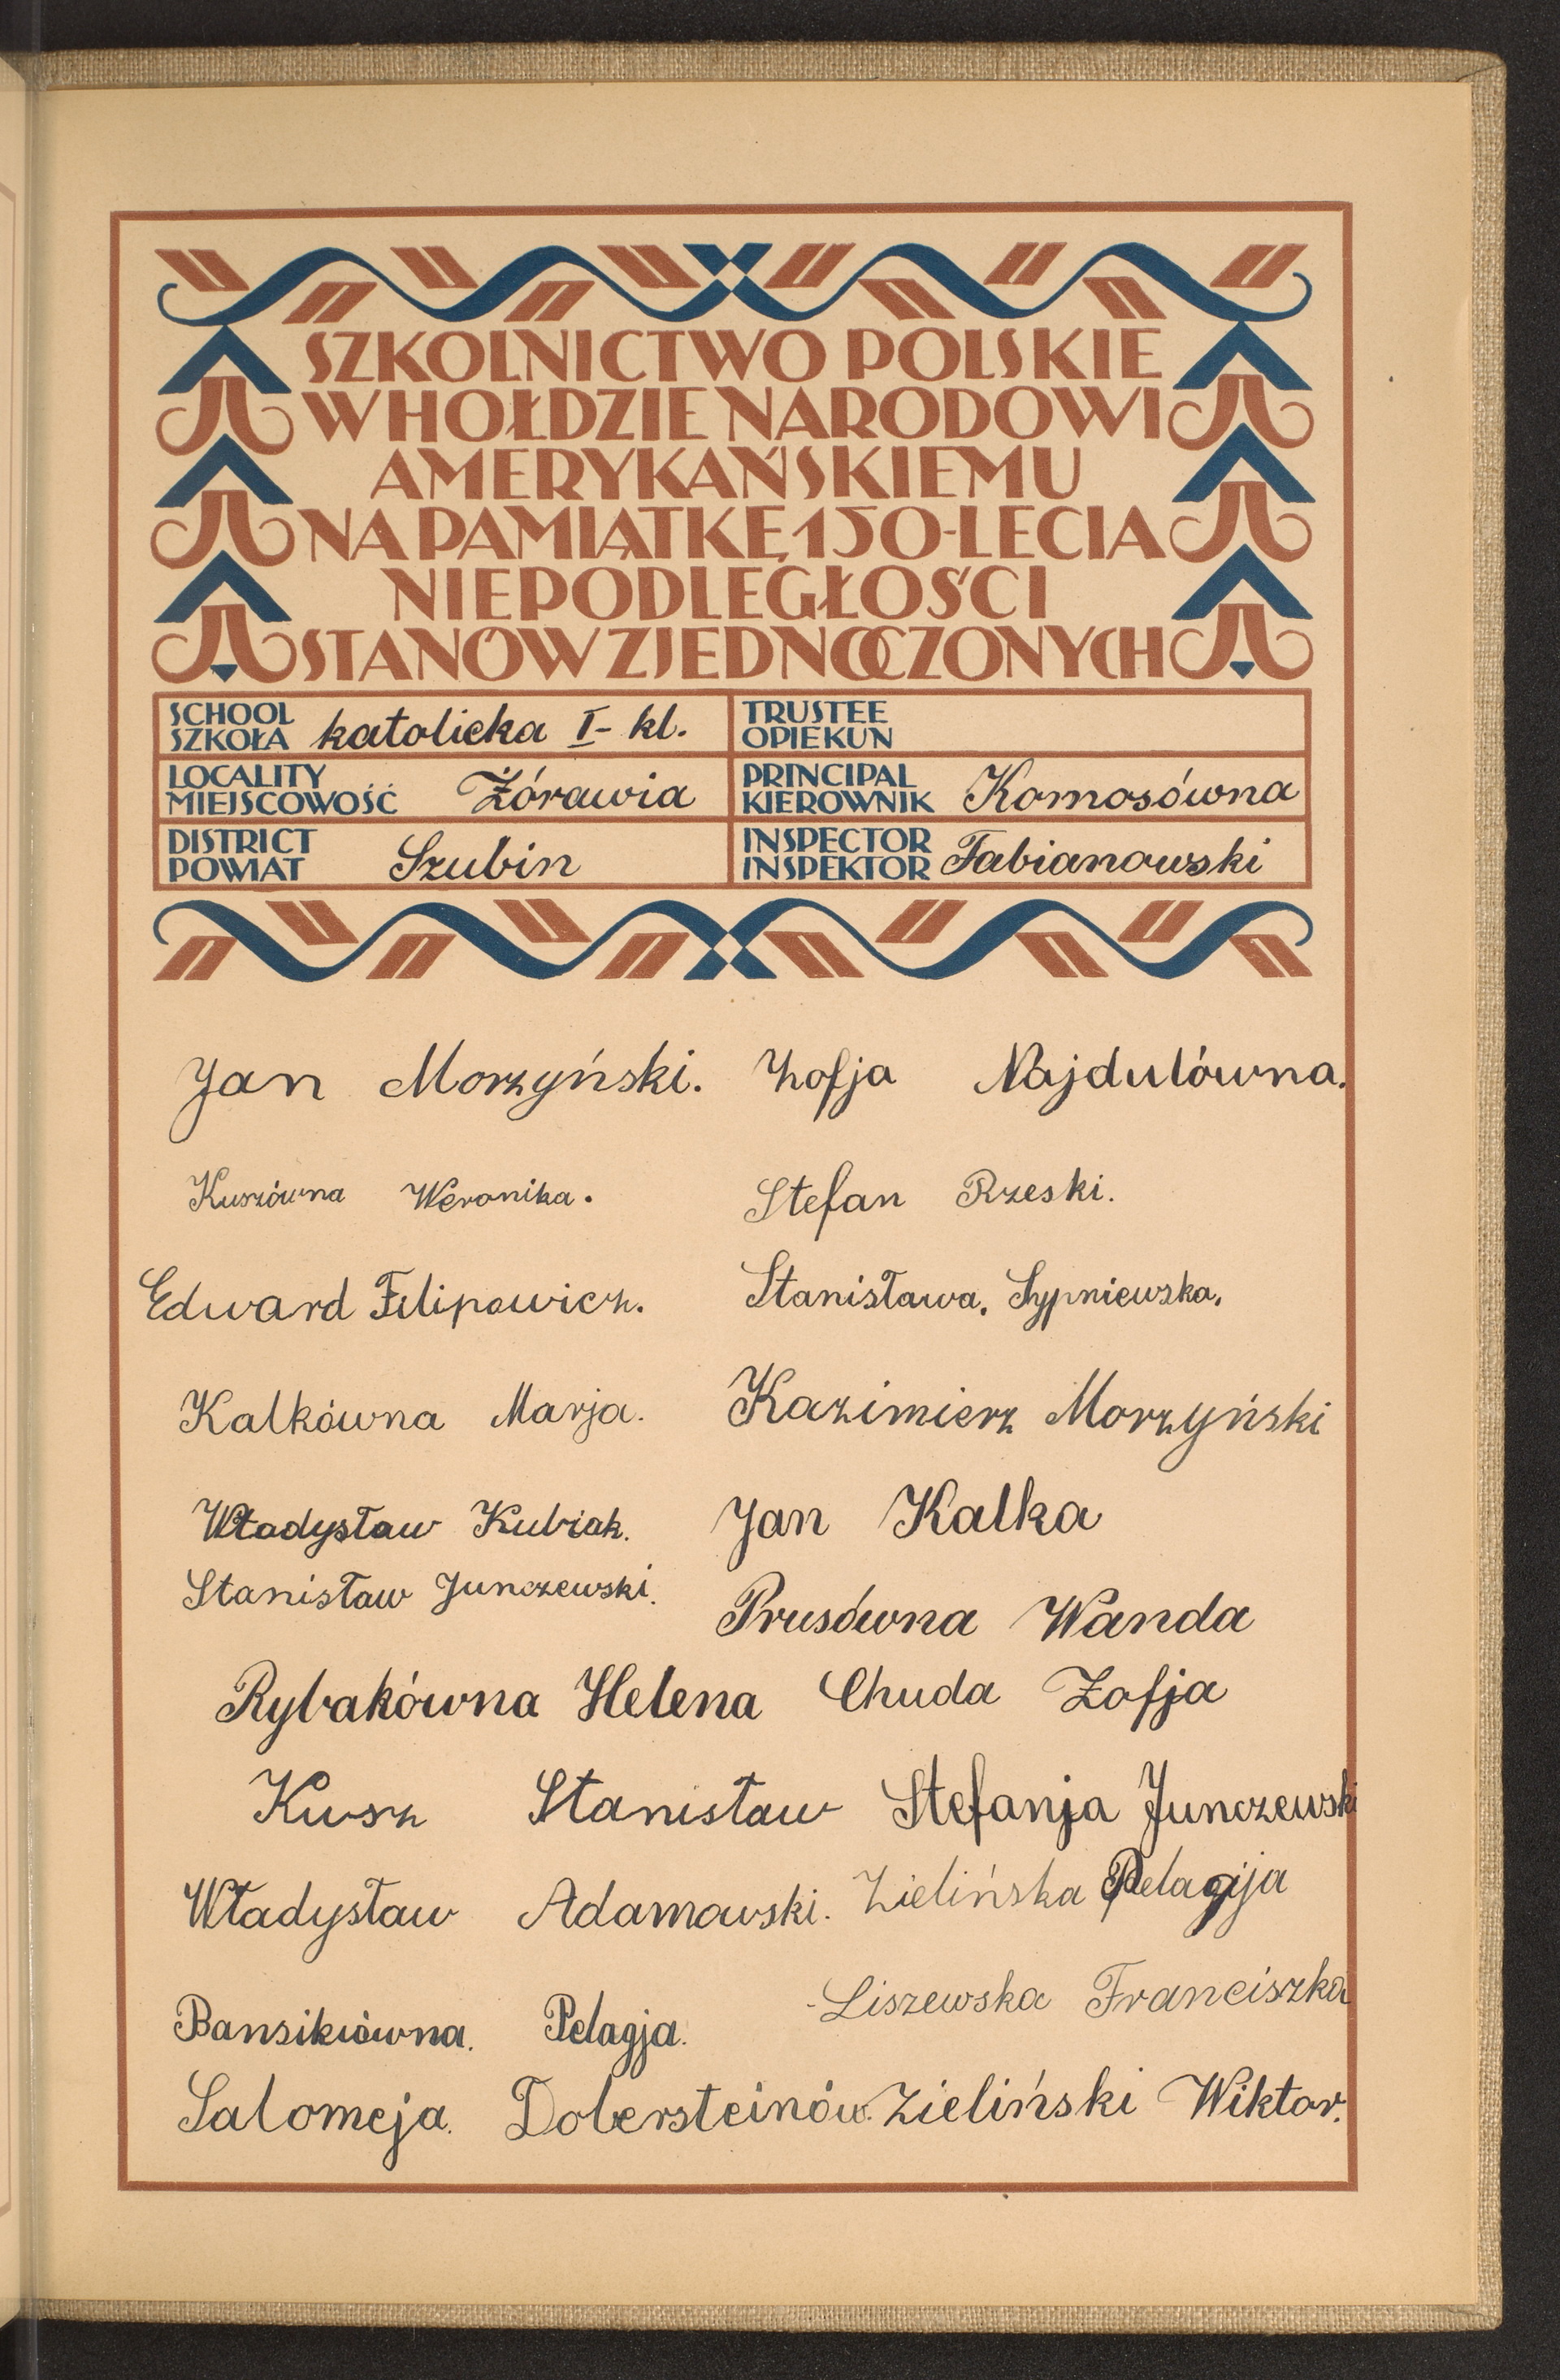 SZKOLNICTWO POLSKIE
W HOŁDZIE NARODOWI
AMERYKAŃSKIEMU
NA PAMIĄTKĘ 150-LECIA
NIEPODLEGŁOŚCI
STANÓW ZJEDNOCZONYCH
SCHOOL
SZKOŁA katolicka I- kl.
TRUSTEE
OPIEKUN
LOCALITY
MIEJSCOWOŚĆ Żórawia
PRINCIPAL
KIEROWNIK Komosówna
DISTRICT
POWIAT Szubin
INSPECTOR
INSPEKTOR Fabianowski
Jan Morzyński. Zofja Najdulówna.
Kuszówna Weronika. Stefan Rzeski.
Edward Filipowicz. Stanisława, Sypniewska,
Kalkówna Marja. Kazimierz Morzyński
Władysław Kubiak. Jan Kalka
Stanisław Junczewski. Prusówna Wanda
Rybakówna Helena Chuda Zofja
Kusz Stanisław Stefanja Junczewski
Władysław Adamowski. Zielińska Pelagija
Liszewska Franciszka
Bansikiówna. Pelagja.
Salomeja. Dobersteinów. Zieliński Wiktor.